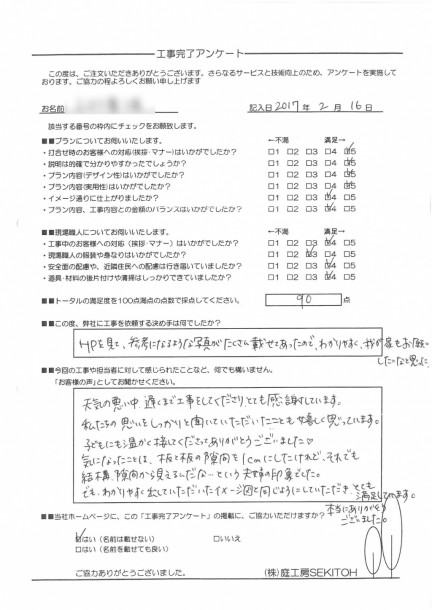 工事完了アンケート
この度は、ご注文いただきありがとうございます。さらなるサービスと技術向上のため、アンケートを実施して
おります。ご協力の程よろしくお願い申し上げます
お名前
記入日 2017年 2月 16日
該当する番号の枠内にチェックをお願致します。
■■プランについてお伺いいたします。 ←不満 満足→
・打合せ時のお客様への対応(挨拶・マナー)はいかがでしたか? □1 □2 □3 □4 ☑5
・説明は的確で分かりやすかったでしょうか? □1 □2 □3 □4 ☑5
・プラン内容(デザイン性)はいかがでしたか? □1 □2 □3 □4 ☑5
・プラン内容(実用性)はいかがでしたか? □1 □2 □3 □4 ☑5
・イメージ通りに仕上がりましたか? □1 □2 □3 ☑4 □5
・プラン内容、工事内容との金額のバランスはいかがでしたか? □1 □2 □3 ☑4 □5
■■現場職人についてお伺いいたします。 ←不満 満足→
・工事中のお客様への対応(挨拶・マナー)はいかがでしたか? □1 □2 □3 ☑4 □5
・現場職人の服装や身なりはいかがでしたか? □1 □2 ☑3 □4 □5
・安全面の配慮や、近隣住民への配慮は行き届いていましたか? □1 □2 □3 ☑4 □5
・道具・材料の後片付けや清掃はしっかりできていましたか? □1 □2 □3 ☑4 □5
■■トータルの満足度を100点満点の点数で採点してください。 90 点
■■この度、弊社に工事を依頼する決め手は何でしたか?
HPを見て、参考になるような写真がたくさん載せてあったので、わかりやすく、我が家もお願い
したいなと思った
■■今回の工事や担当者に対して感じられたことなど、何でも構いません。
「お客様の声」としてお聞かせください。
天気の悪い中、遅くまで工事をしてくださりとても感謝しています。
私たちの思いをしっかりと聞いていただいたことも嬉しく思っています。
子どもにも温かく接してくださってありがとうございました♡
気になったことは、板と板の隙間を1cmにしたけれど、それでも
結構、隙間から見えるんだな…という夫婦の印象でした。
でも、わかりやすく出していただいたイメージ図と同じようにしていただき、とても
満足しています。
本当にありがとう
ございました。
■■当社ホームページに、この「工事完了アンケート」の掲載に、ご協力いただけますか?
☑はい (名前は載せない) □いいえ
□はい (名前を載せても良い)
ご協力ありがとうございました。
(株)庭工房SEKITOH